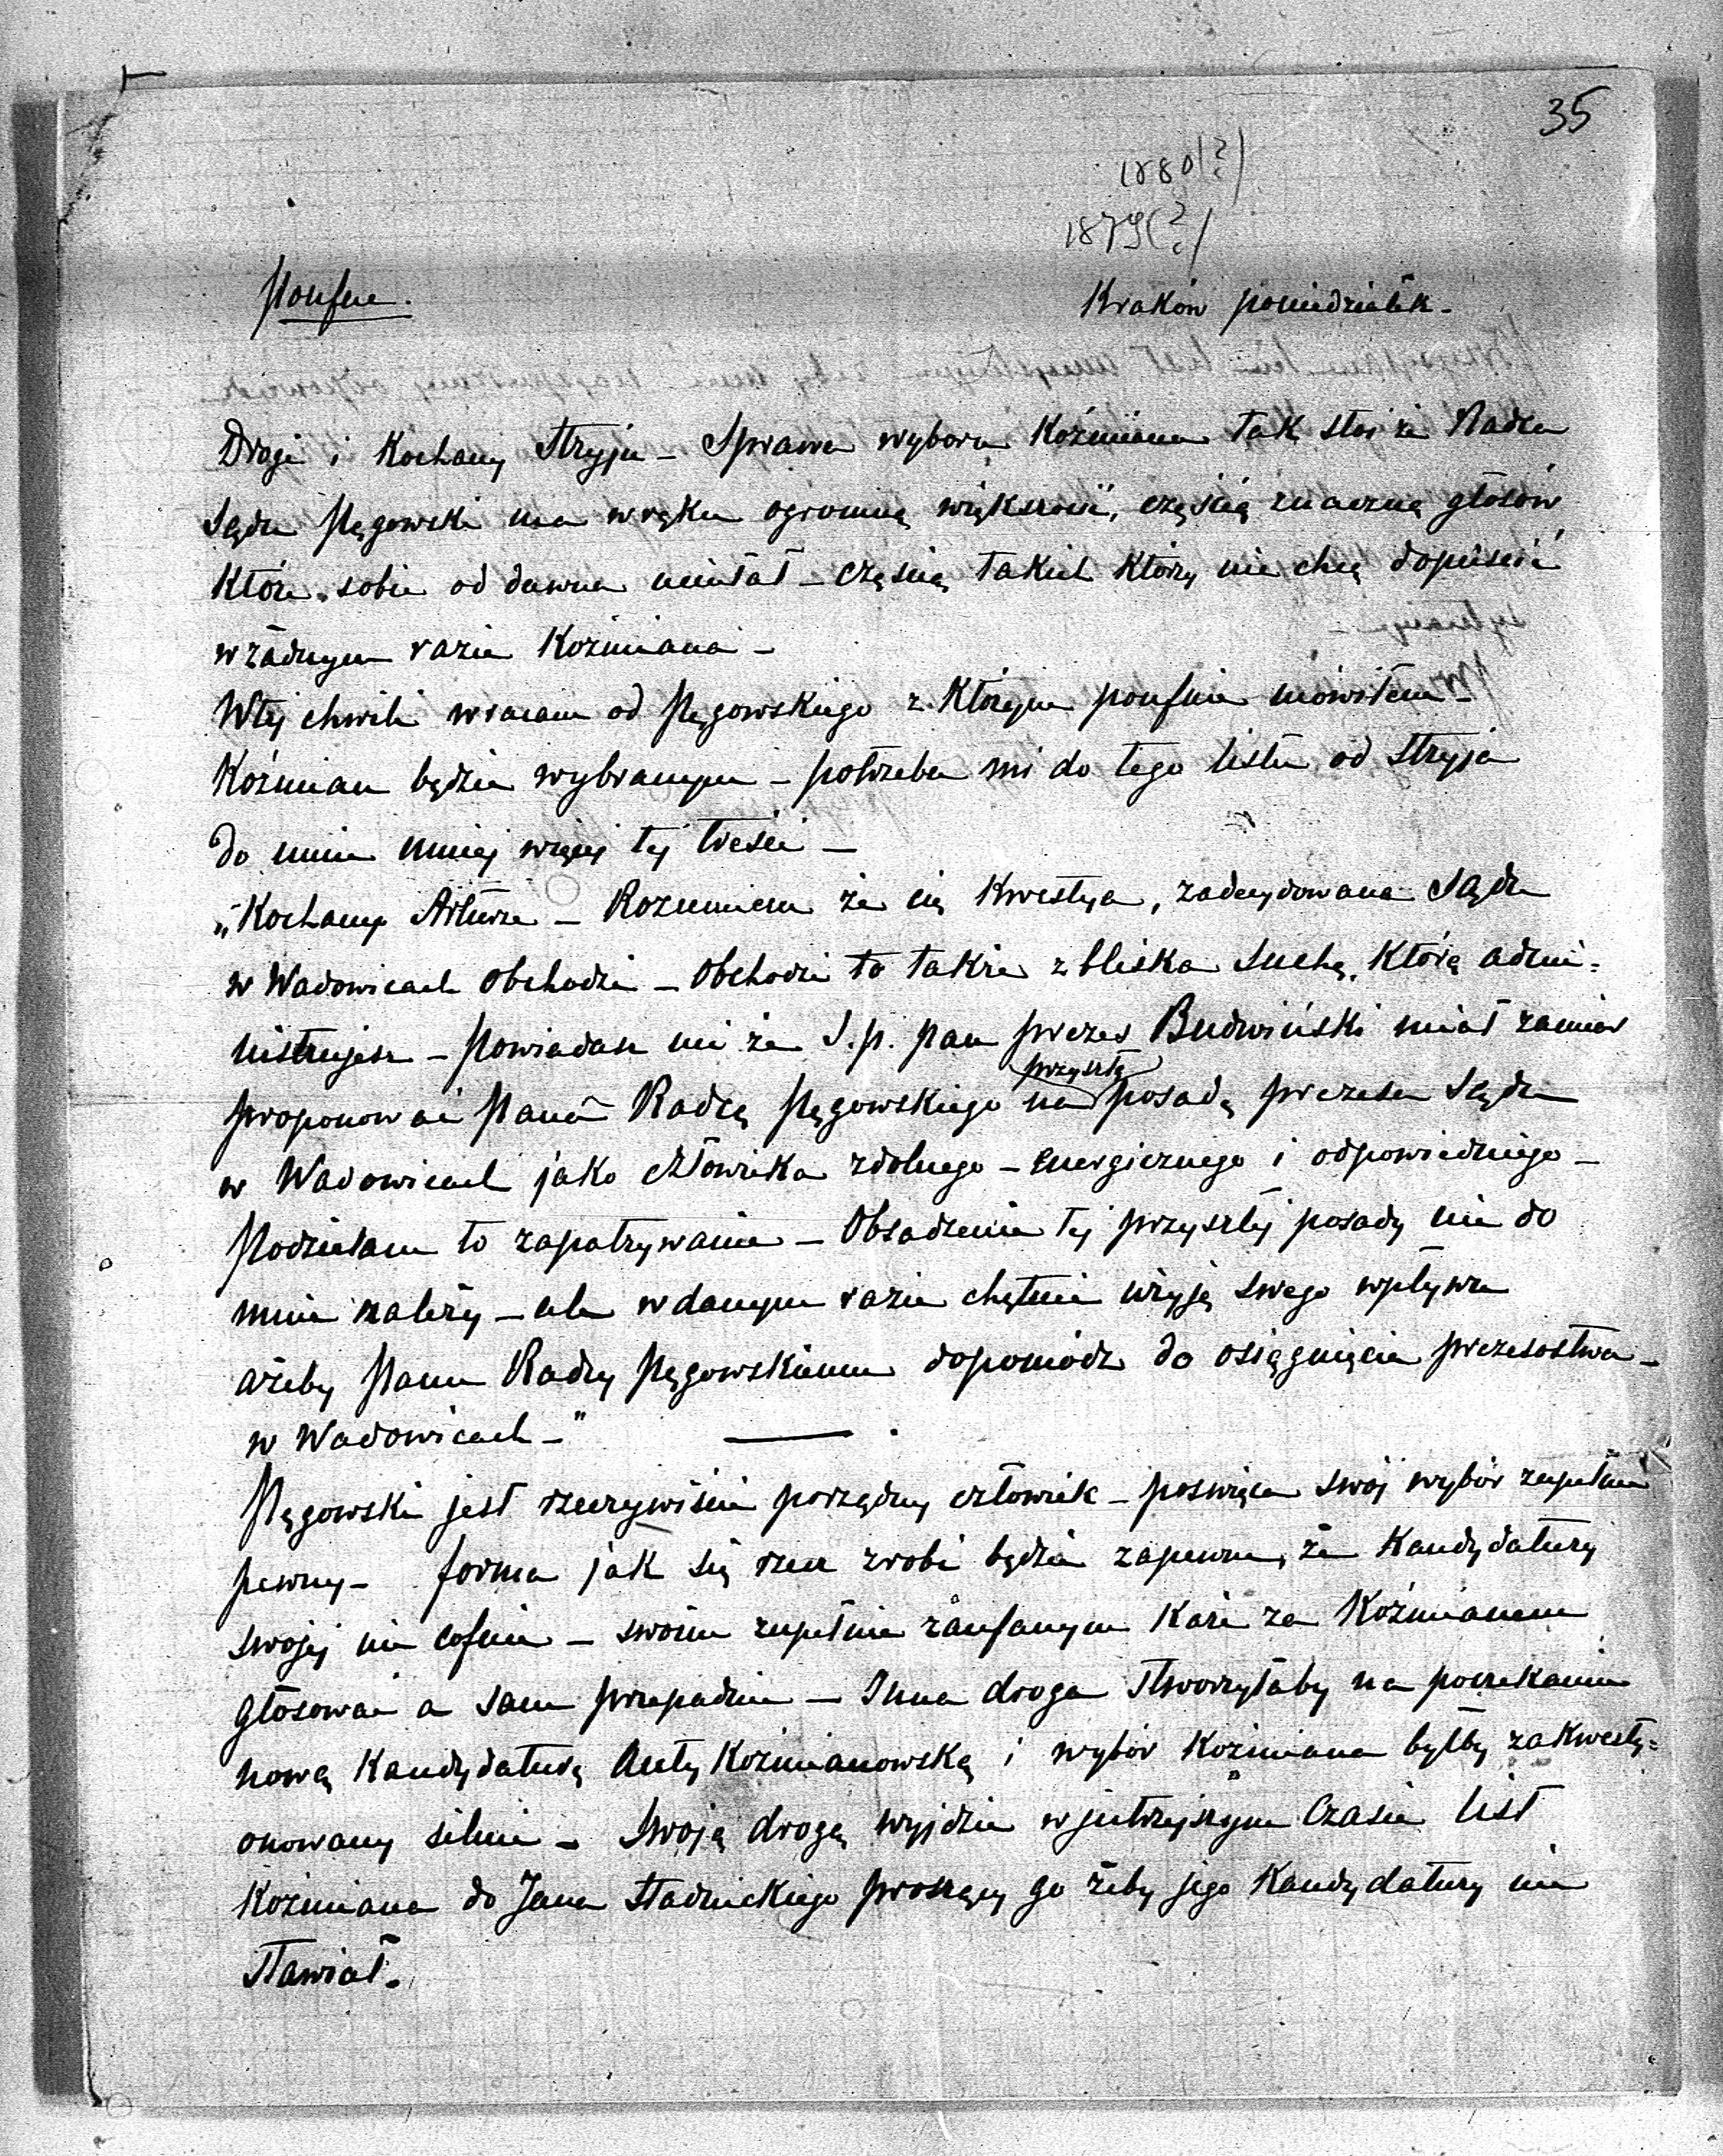 35
1880(?)
1879(?)
Poufne.
Kraków poniedziałek.
Drogi i Kochany Stryju – Sprawa wyboru Koźmiana tak stoi że Radca
Sądu Pęgowski ma w ręku ogromną większość, częścią znaczną głosów
które sobie od dawna ujmował – częścią takich którzy nie chcą dopuścić
w żadnym razie Koźmiana –
W tej chwili wracam od Pęgowskiego z którym poufnie mówiłem –
Koźmian będzie wybranym – potrzeba mi do tego listu od Stryja
do mnie mniej więcej tej treści –
„Kochany Arturze – Rozumiem że cię kwestya, zadecydowana Sądu
w Wadowicach obchodzi – obchodzi to także z bliska Suchą, którą admi=
nistrujesz – Powiadasz mi że S.p. pan prezes Budwiński miał zamiar
proponować Pana Radcę Pęgowskiego na przyszłą posadę prezesa Sądu
w Wadowicach jako człowieka zdolnego – energicznego i odpowiedniego –
Podzielam to zapatrywanie – Obsadzenie tej przyszłej posady nie do
mnie należy – ale w danym razie chętnie użyję swego wpływu
ażeby Panu Radcy Pęgowskiemu dopomódz do osiągnięcia prezesostwa –
w Wadowicach –"
Pęgowski jest rzeczywiście porządny człowiek – poświęca swój wybór zupełnie
pewny – forma jak się rzecz zrobi będzie zapewne, że kandydatury
swojej nie cofnie – swoim zupełnie zaufanym każe za Koźmianem
głosować a sam przepadnie – Inna droga stworzyłaby na poczekaniu
nową kandydaturę Anty Koźmianowską i wybór Koźmiana byłby zakwesty=
onowany silnie – Swoją drogą wyjdzie w jutrzejszym Czasie list
Koźmiana do Jana Stadnickiego proszący go żeby jego kandydatury nie
stawiał.